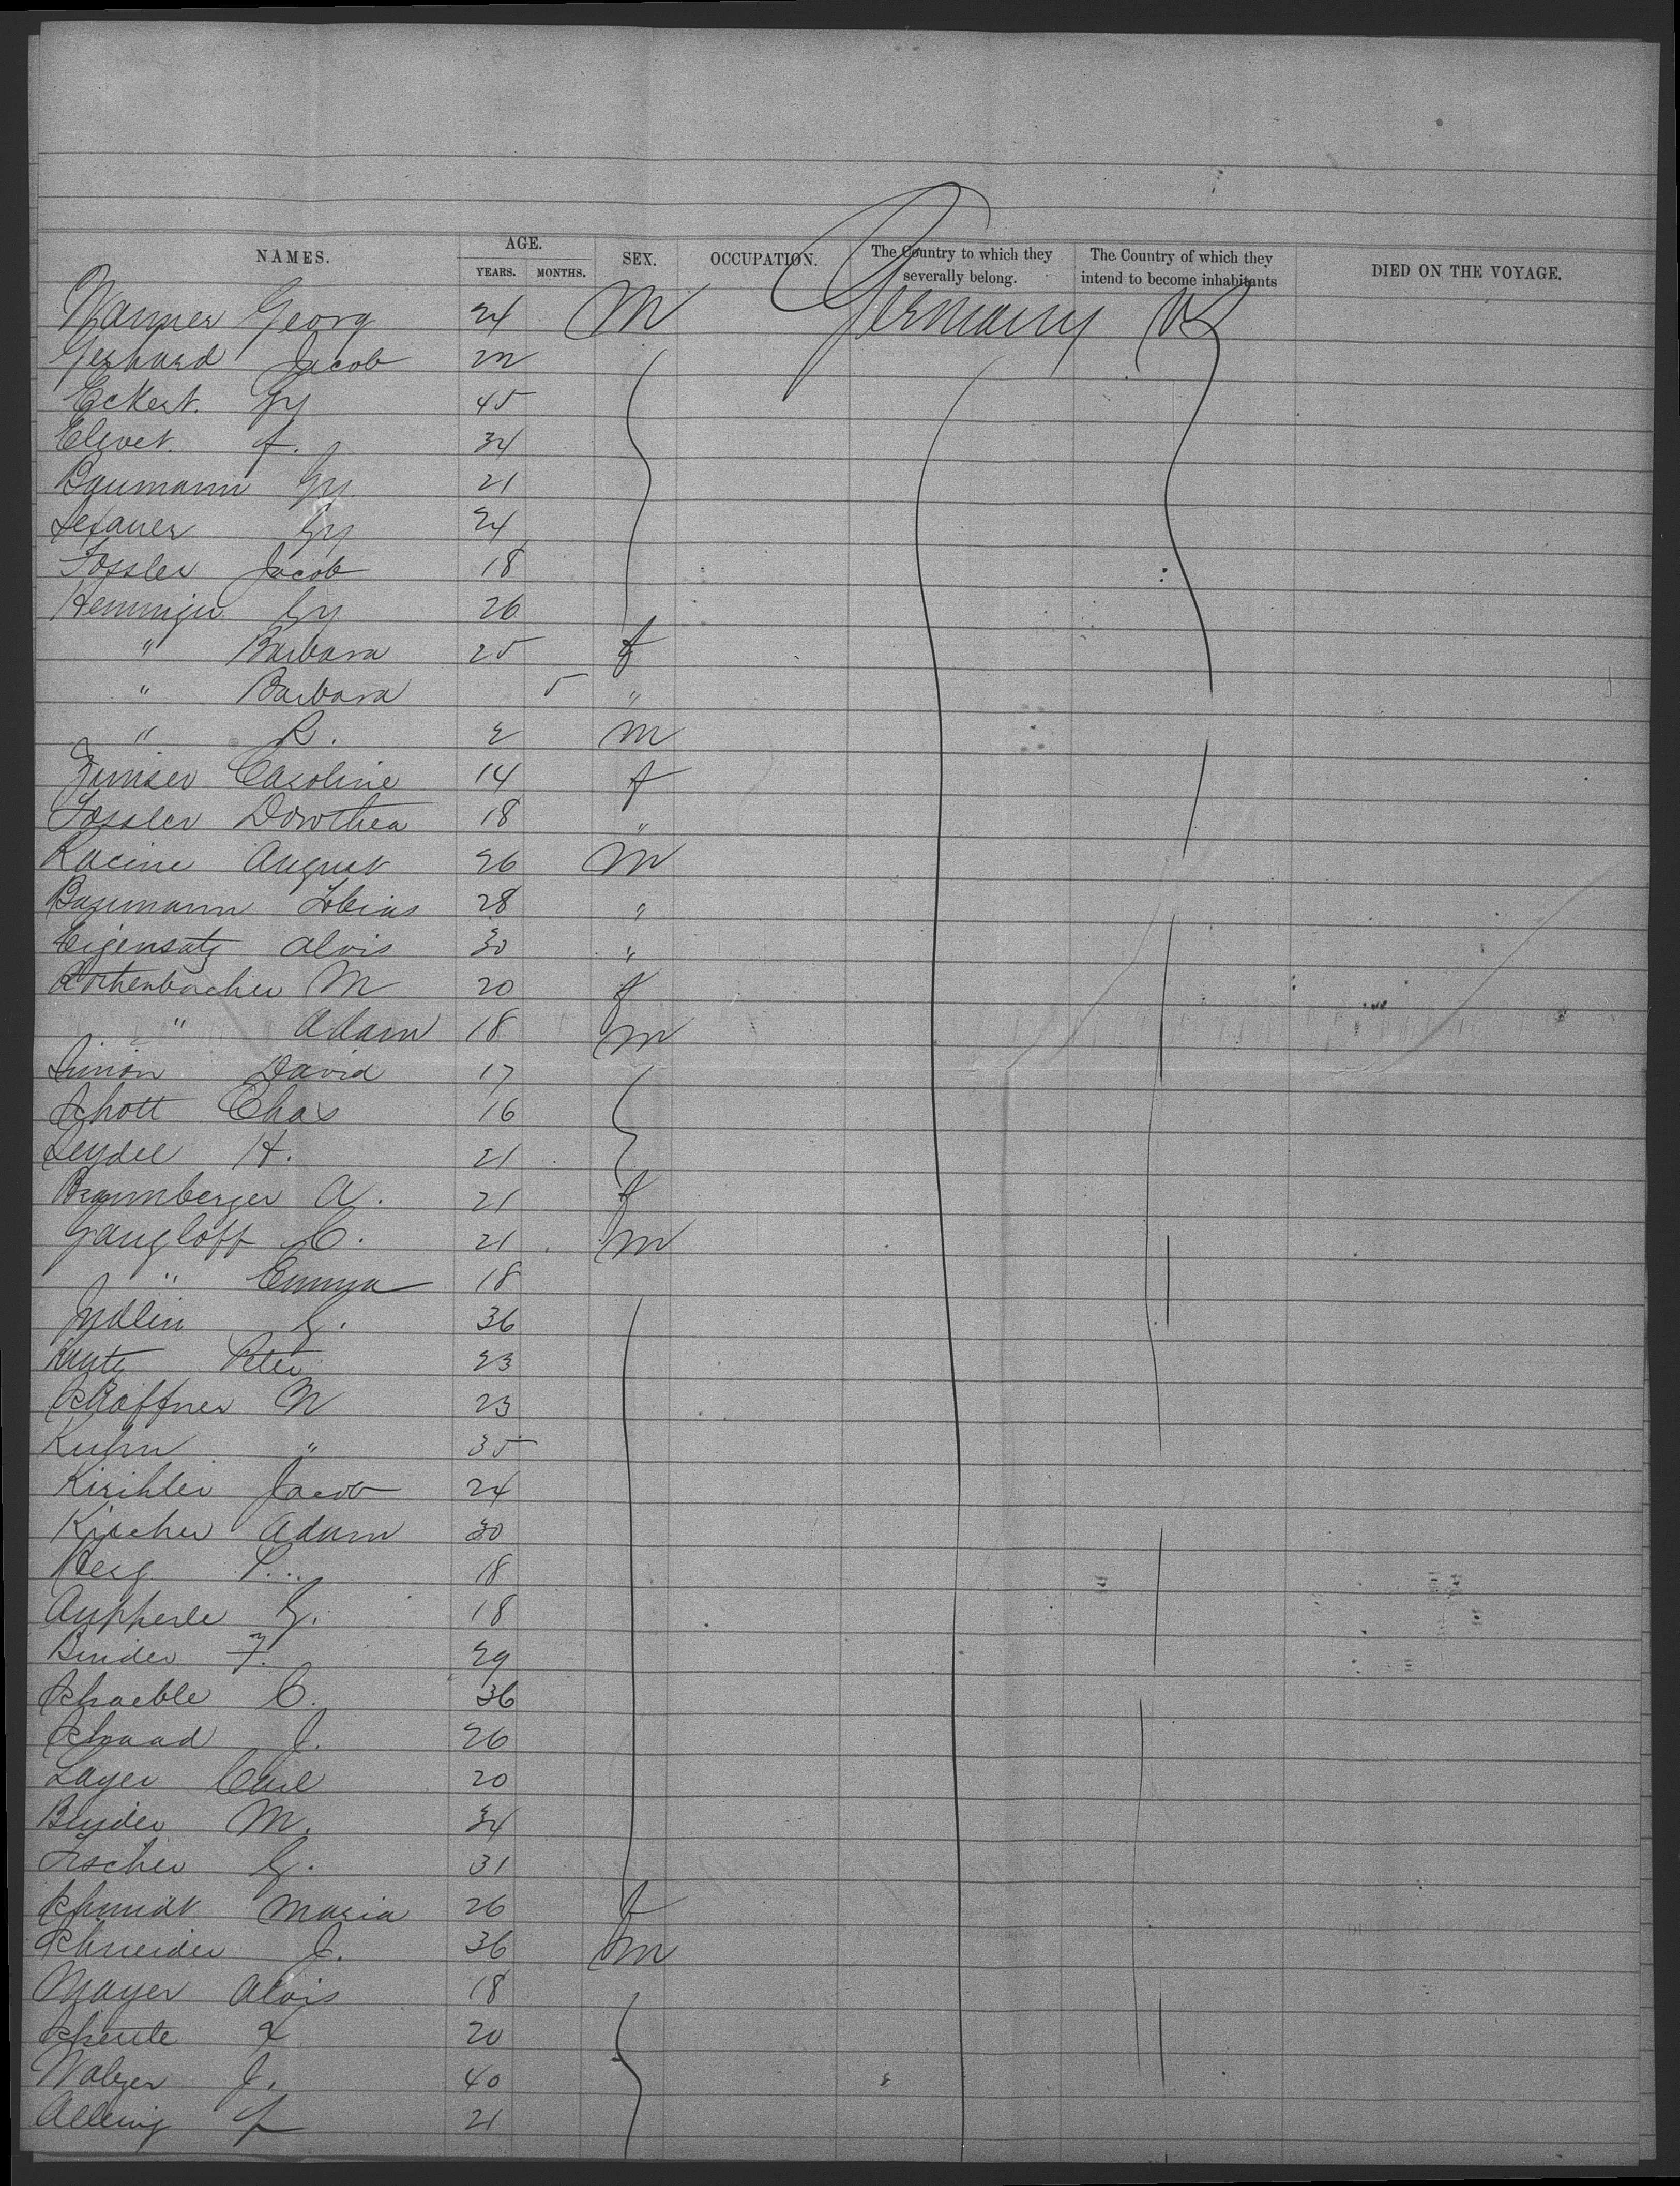 NAMES. AGE. SEX. OCCUPATION. The Country to which they severally belong. The Country of which they intend to become inhabitants DIED ON THE VOYAGE.
YEARS. MONTHS.
Wanner Georg 24 M Germany US
Gerhard Jacob 22
Eckert Gg 45
34
Baumann Gg 21
Gg 24
Fossler Jacob 18
Gg 26
" Barbara 25 f
" Barbara 5 "
" R. 2 m
Caroline 14 f
Fossler Dorothea 18 "
Racine August 26 M
Baumann Tobias 28 "
Eigensatz Alois 30 "
Rothenbacher M 20 f
" Adam 18 m
Simon David 17
Schott Chas 16
Seydel H. 21
A. 21 f
Gangloff C. 21 m
" Emma 18
G. 36
Kautz Peter 23
Schaffner N 23
Kuhn " 35
Jacob 24
Kircher Adam 30
18
Aupperle G. 18
Binder F. 29
Schaeble C. 36
Schaad J. 26
Layer Carl 20
Binder M. 34
Fischer G. 31
Schmidt Maria 26 f
Schneider J. 36 m
Mayer Alois 18
20
J. 40
21